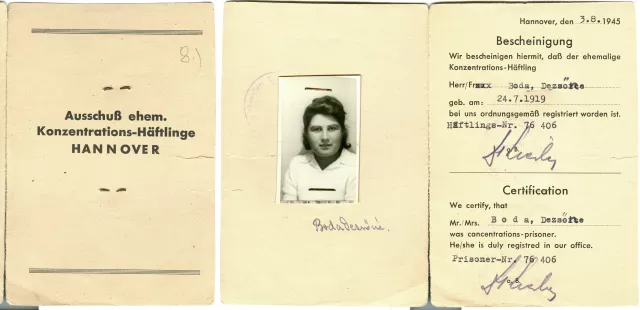 8.)
Ausschuß ehem.
Konzentrations-Häftlinge
HANNOVER
Boda Dezsöné.
Hannover, den 3.8.1945
Bescheinigung
Wir bescheinigen hiermit, daß der ehemalige
Konzentrations-Häftling
Herr/Frxxx Boda, Dezsöfte
geb. am: 24.7.1919
bei uns ordnungsgemäß registriert worden ist.
Häftlings-Nr. 76 406
Certification
We certify, that
Mr./Mrs. Boda, Dezsöfte
was concentrations-prisoner.
He/she is duly registred in our office.
Prisoner-Nr. 76 406